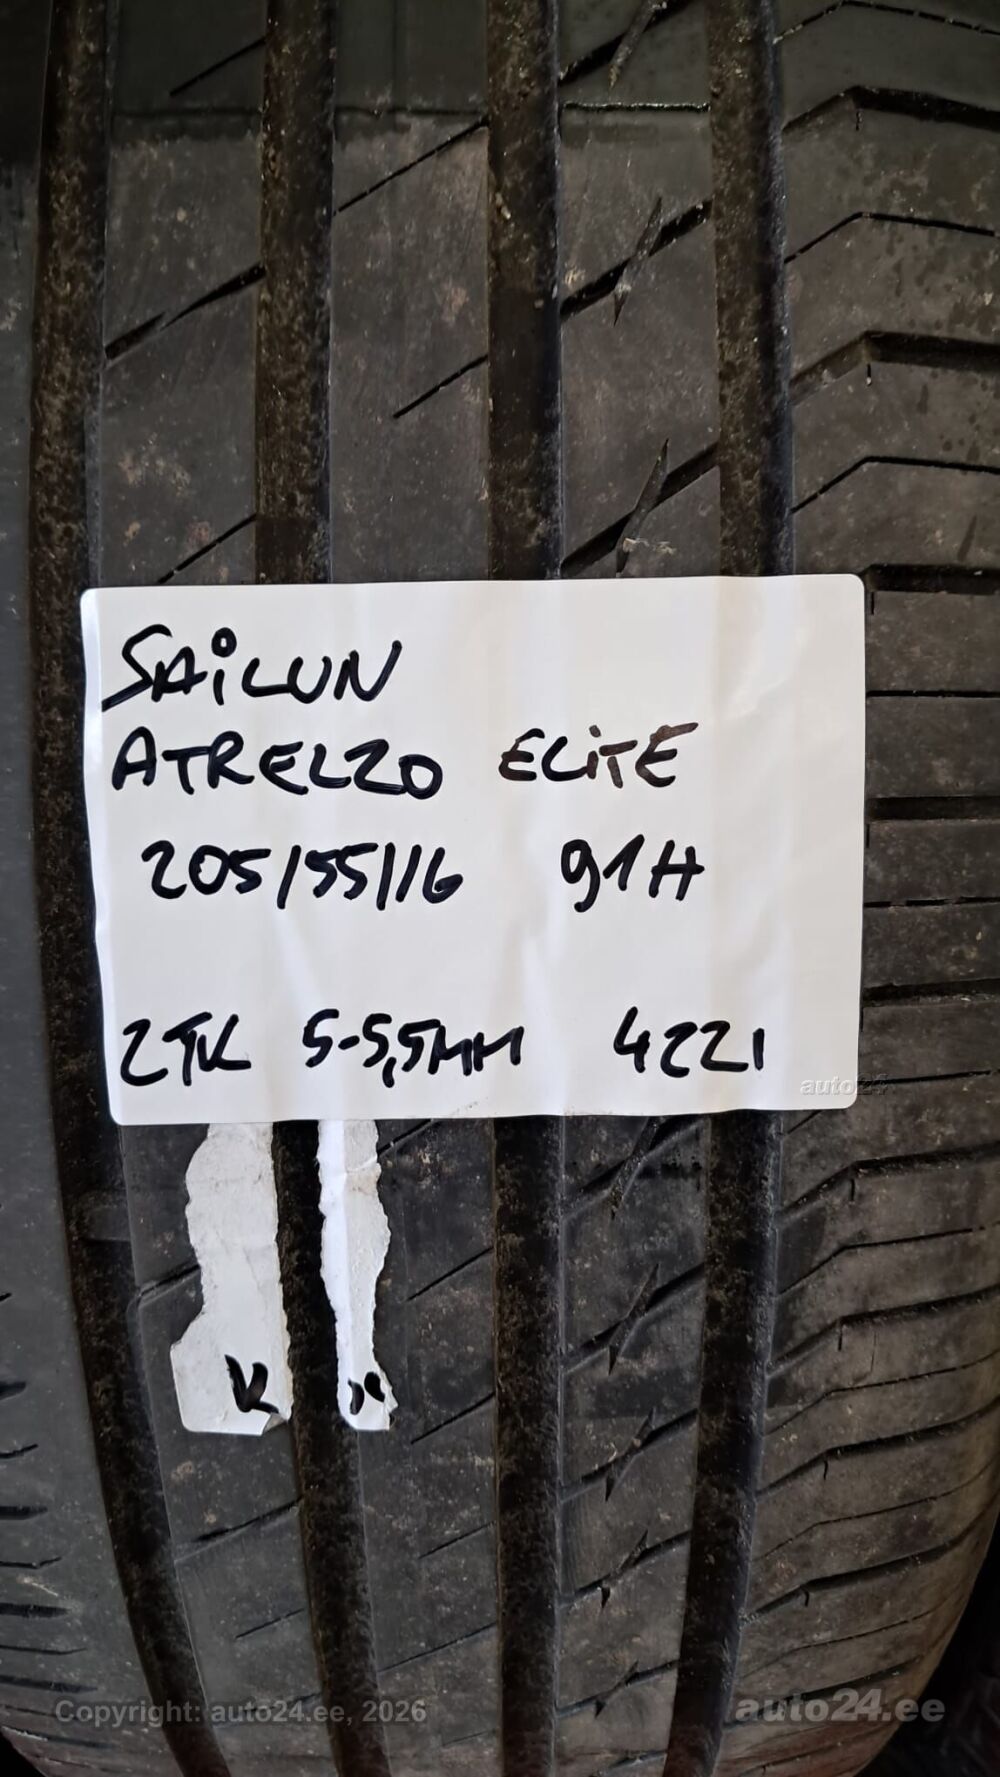 SAiLUN
ATREZZO ELiTE
205/55/16 91H
2TK 5-5,5MM 4221
auto24
K
Copyright: auto24.ee, 2026
auto24.ee